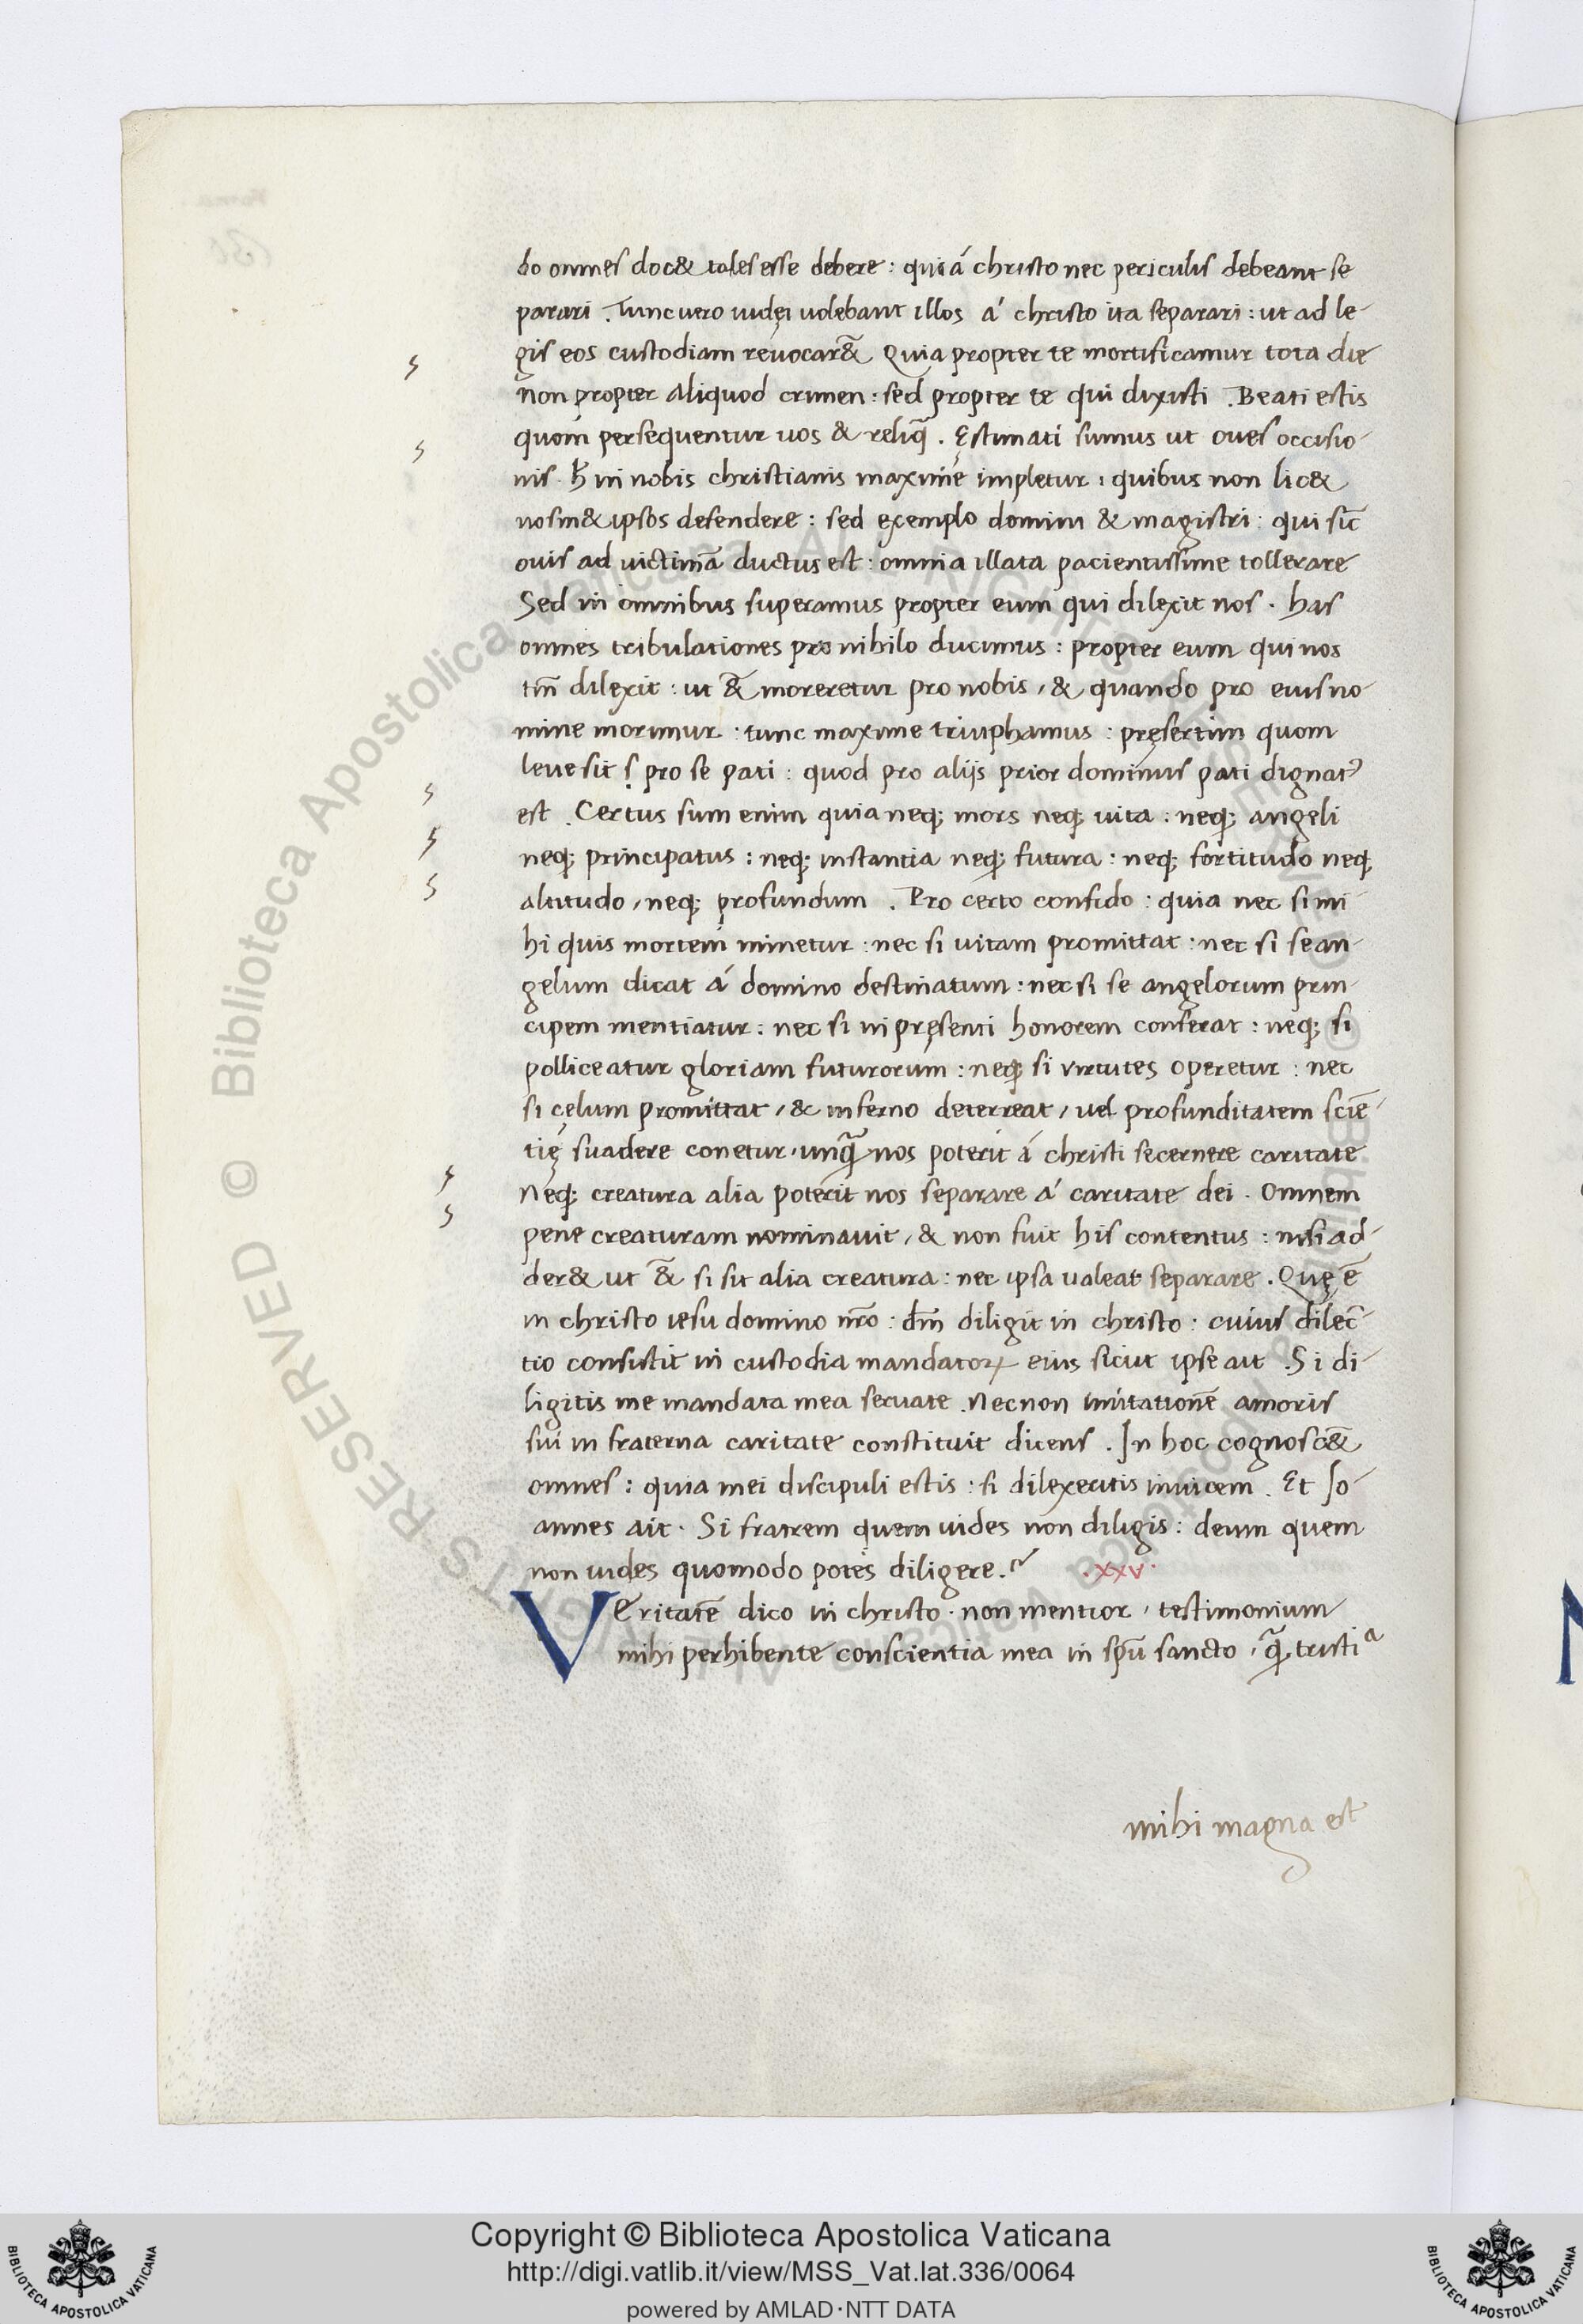 do omnes doc& tales esse debere : qui á christo nec periculis debeant se
parari . Tunc uero iudęi uolebant illos á christo ita separari : ut ad le-
gis eos custodiam reuocar&̃ Quia propter te mortificamur tota die
non propter aliquod crimen : sed propter te qui dixisti . Beati estis
quom persequentur uos & reliq̃ . Ęstimati sumus ut oues occisio-
nis . h̃ in nobis christianis maxime impletur : quibus non lic&
nosm& ipsos defendere : sed exemplo domini & magistri : qui sic̃
ouis ad uictimã ductus est : omnia illata pacientissime tollerare
Sed in omnibus superamus propter eum qui dilexit nos . has
omnes tribulationes pro nihilo ducimus : propter eum qui nos
tm̃ dilexit : ut &̃ moreretur pro nobis , & quando pro eius no-
mine morimur : tunc maxime triuphamus : pręsertim quom
leue sit ș pro se pati : quod pro alijs prior dominus pati dignat᾽
est . Certus sum enim quia neq; mors neq; uita : neq; angeli
neq; principatus : neq; instantia neq; futura : neq; fortitudo neq;
altitudo , neq; profundum . Pro certo confido : quia nec si mi
hi quis mortem minetur : nec si uitam promittat : nec si se an-
gelum dicat á domino destinatum : nec si se angelorum prin-
cipem mentiatur : nec si in pręsenti honorem conferat : neq; si
polliceatur gloriam futurorum : neq; si virtutes operetur : nec
si cęlum promittat , & inferno deterreat , uel profunditatem sciẽ-
tię suadere conetur , unq̃ nos poterit á christi secernere caritate
Neq; creatura alia poterit nos separare á caritate dei . Omnem
pene creaturam nominauit , & non fuit his contentus : nisi ad-
der& ut &̃ si sit alia creatura : nec ipsa ualeat separare . Quę ẽ
in christo iesu domino nr̃o : dm̃ diligit in christo : cuius dilec-
tio consistit in custodia mandatoꝝ eius sicut ipse ait . Si di-
ligitis me mandata mea seruate . Necnon imitationẽ amoris
sui in fraterna caritate constituit dicens . In hoc cognosc&̃
omnes : quia mei discipuli estis : si dilexeritis inuicem . Et Io-
annes ait . Si fratrem quem uides non diligis : deum quem
non uides quomodo potes diligere .
.XXV.
VEritatẽ dico in christo . non mentior , testimonium
mihi perhibente conscientia mea in sp̃u sancto , q̃ tristia
mihi magna est
Biblioteca Apostolica Vaticana ALL RIGHTS RESERVED ©
Copyright © Biblioteca Apostolica Vaticana
http://digi.vatlib.it/view/MSS_Vat.lat.336/0064
powered by AMLAD·NTT DATA
BIBLIOTECA APOSTOLICA VATICANA
BIBLIOTECA APOSTOLICA VATICANA